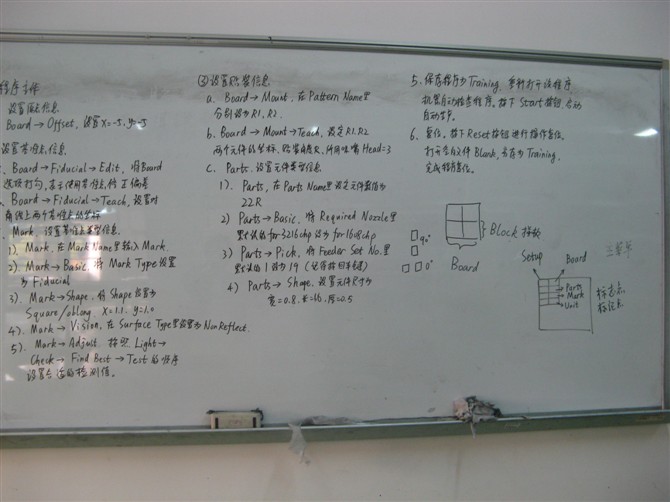 设置原点信息
Board→Offset, 设置X=-5, Y=-5
设置基准点信息
Board→Fiducial→Edit, 将Board
选项打勾, 表示使用基准点修正偏差
Board→Fiducial→Teach, 设置对
角线上两个基准点的坐标
Mark 设置基准点类型信息
1). Mark, 在Mark Name里输入Mark.
2). Mark→Basic, 将Mark Type设置
为Fiducial
3). Mark→Shape, 将Shape设置为
Square/oblong, X=1.1, Y=1.0
4). Mark→Vision, 在Surface Type里设置为NonReflect.
5). Mark→Adjust. 按照Light→
Check→Find Best→Test的顺序
设置合适的检测值。
③设置贴装信息
a. Board→Mount, 在Pattern Name里
分别设为R1, R2.
b. Board→Mount→Teach, 设定R1, R2
两个元件的坐标, 贴装角度R, 所用吸嘴Head=3
c. Parts, 设置元件类型信息
1). Parts, 在Parts Name里设定元件数值为
22R
2) Parts→Basic, 将Required Nozzle里
默认的for3216chip设为for1608chip
3) Parts→Pick, 将Feeder Set No.里
默认的1设为19
4) Parts→Shape, 设置元件尺寸为
宽=0.8, 长=1.6, 厚=0.5
5. 保存程序为Training, 重新打开该程序,
机器自动检查程序。按下Start按钮, 启动
自动生产。
6. 复位。按下Reset按钮进行操作复位。
打开空白文件Blank, 另存为Training,
完成程序复位。
90°
0°
Block 拼板
Board
Setup
Board
Parts
Mark
Unit
标志点